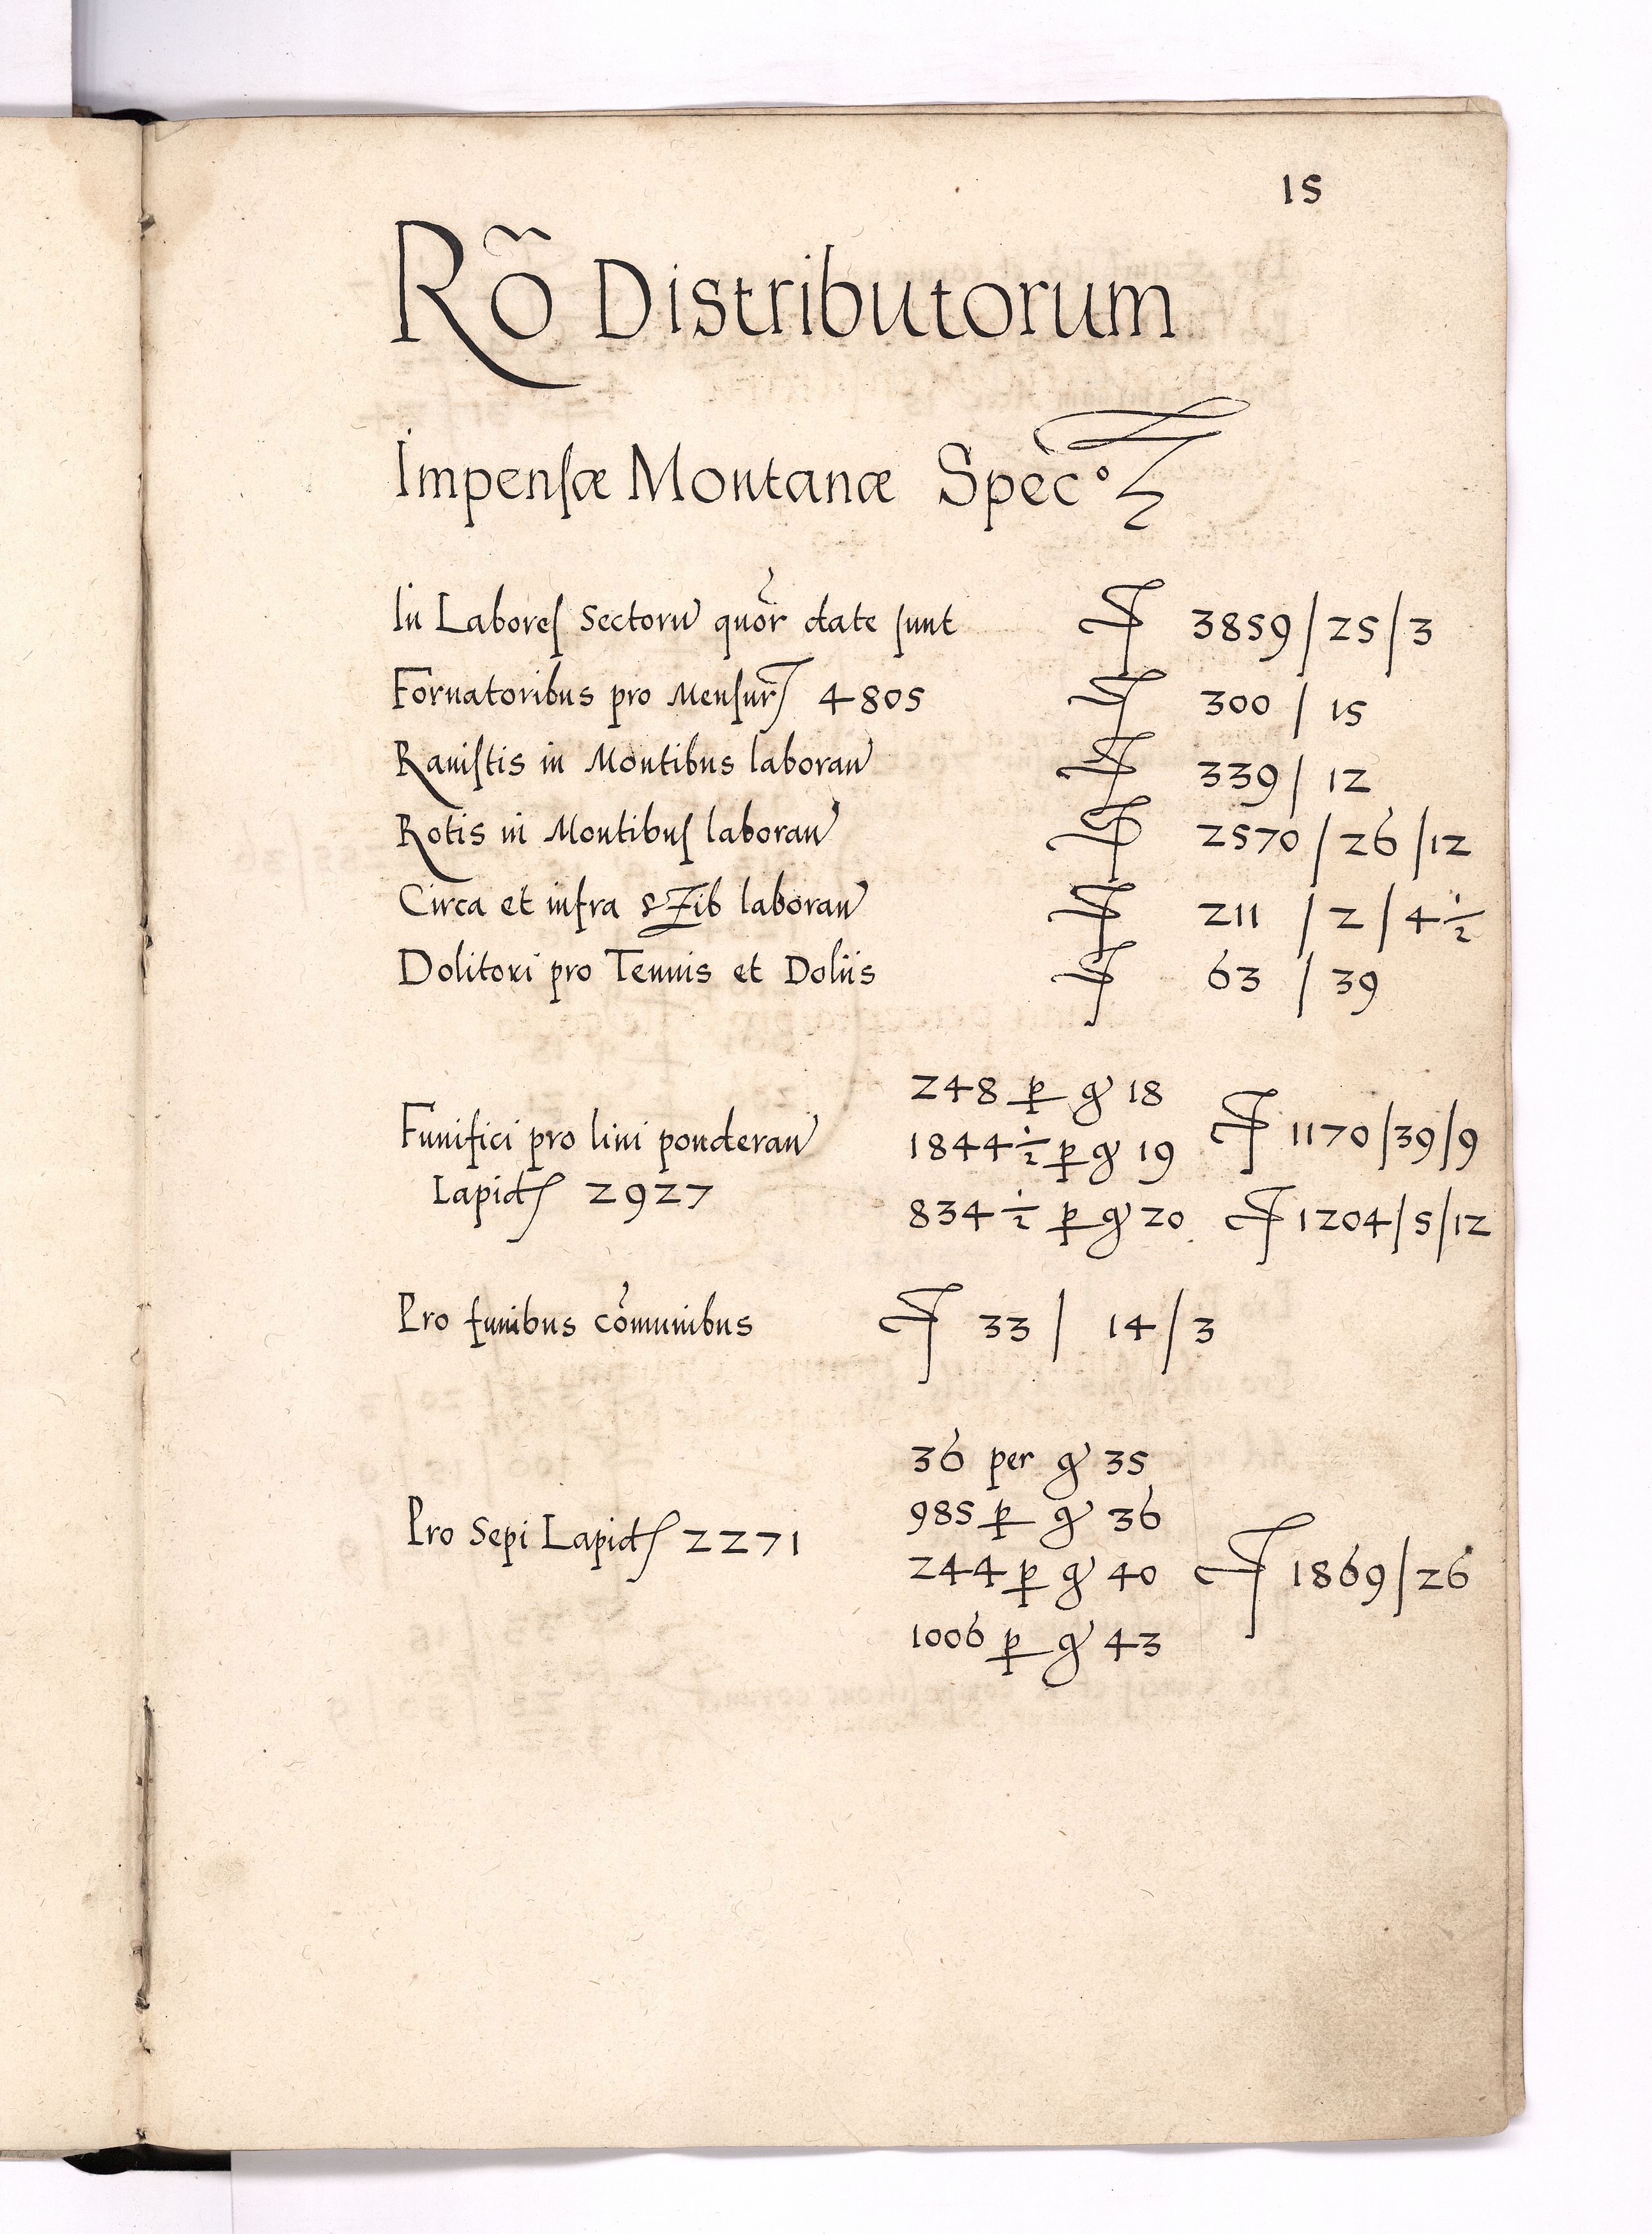 15
Rõ Distributorum
Impensæ Montanæ Spec°
In Labores Sectorũ quor̃ date sunt f 3859/25/3
Fornatoribus pro Mensur 4805 f 300 / 15
Ranistis in Montibus laboran̄ f 339 / 12
Rotis in Montibus laboran̄ f 2570 / 26 / 12
Circa et infra laboran̄ f 211 / 2 / 4 ½
Dolitori pro Tennis et Doliis f 63 / 39
248 p g 18
Funifici pro lini ponderan̄ 1844 ½ p g 19 f 1170/39/9
Lapid 2927
834 ½ p g 20 f 1204/5/12
Pro funibus com̃unibus f 33 / 14/3
36 per g 35
985 p g 36
Pro Sepi Lapid 2271
244 p g 40 f 1869/26
1006 p g 43